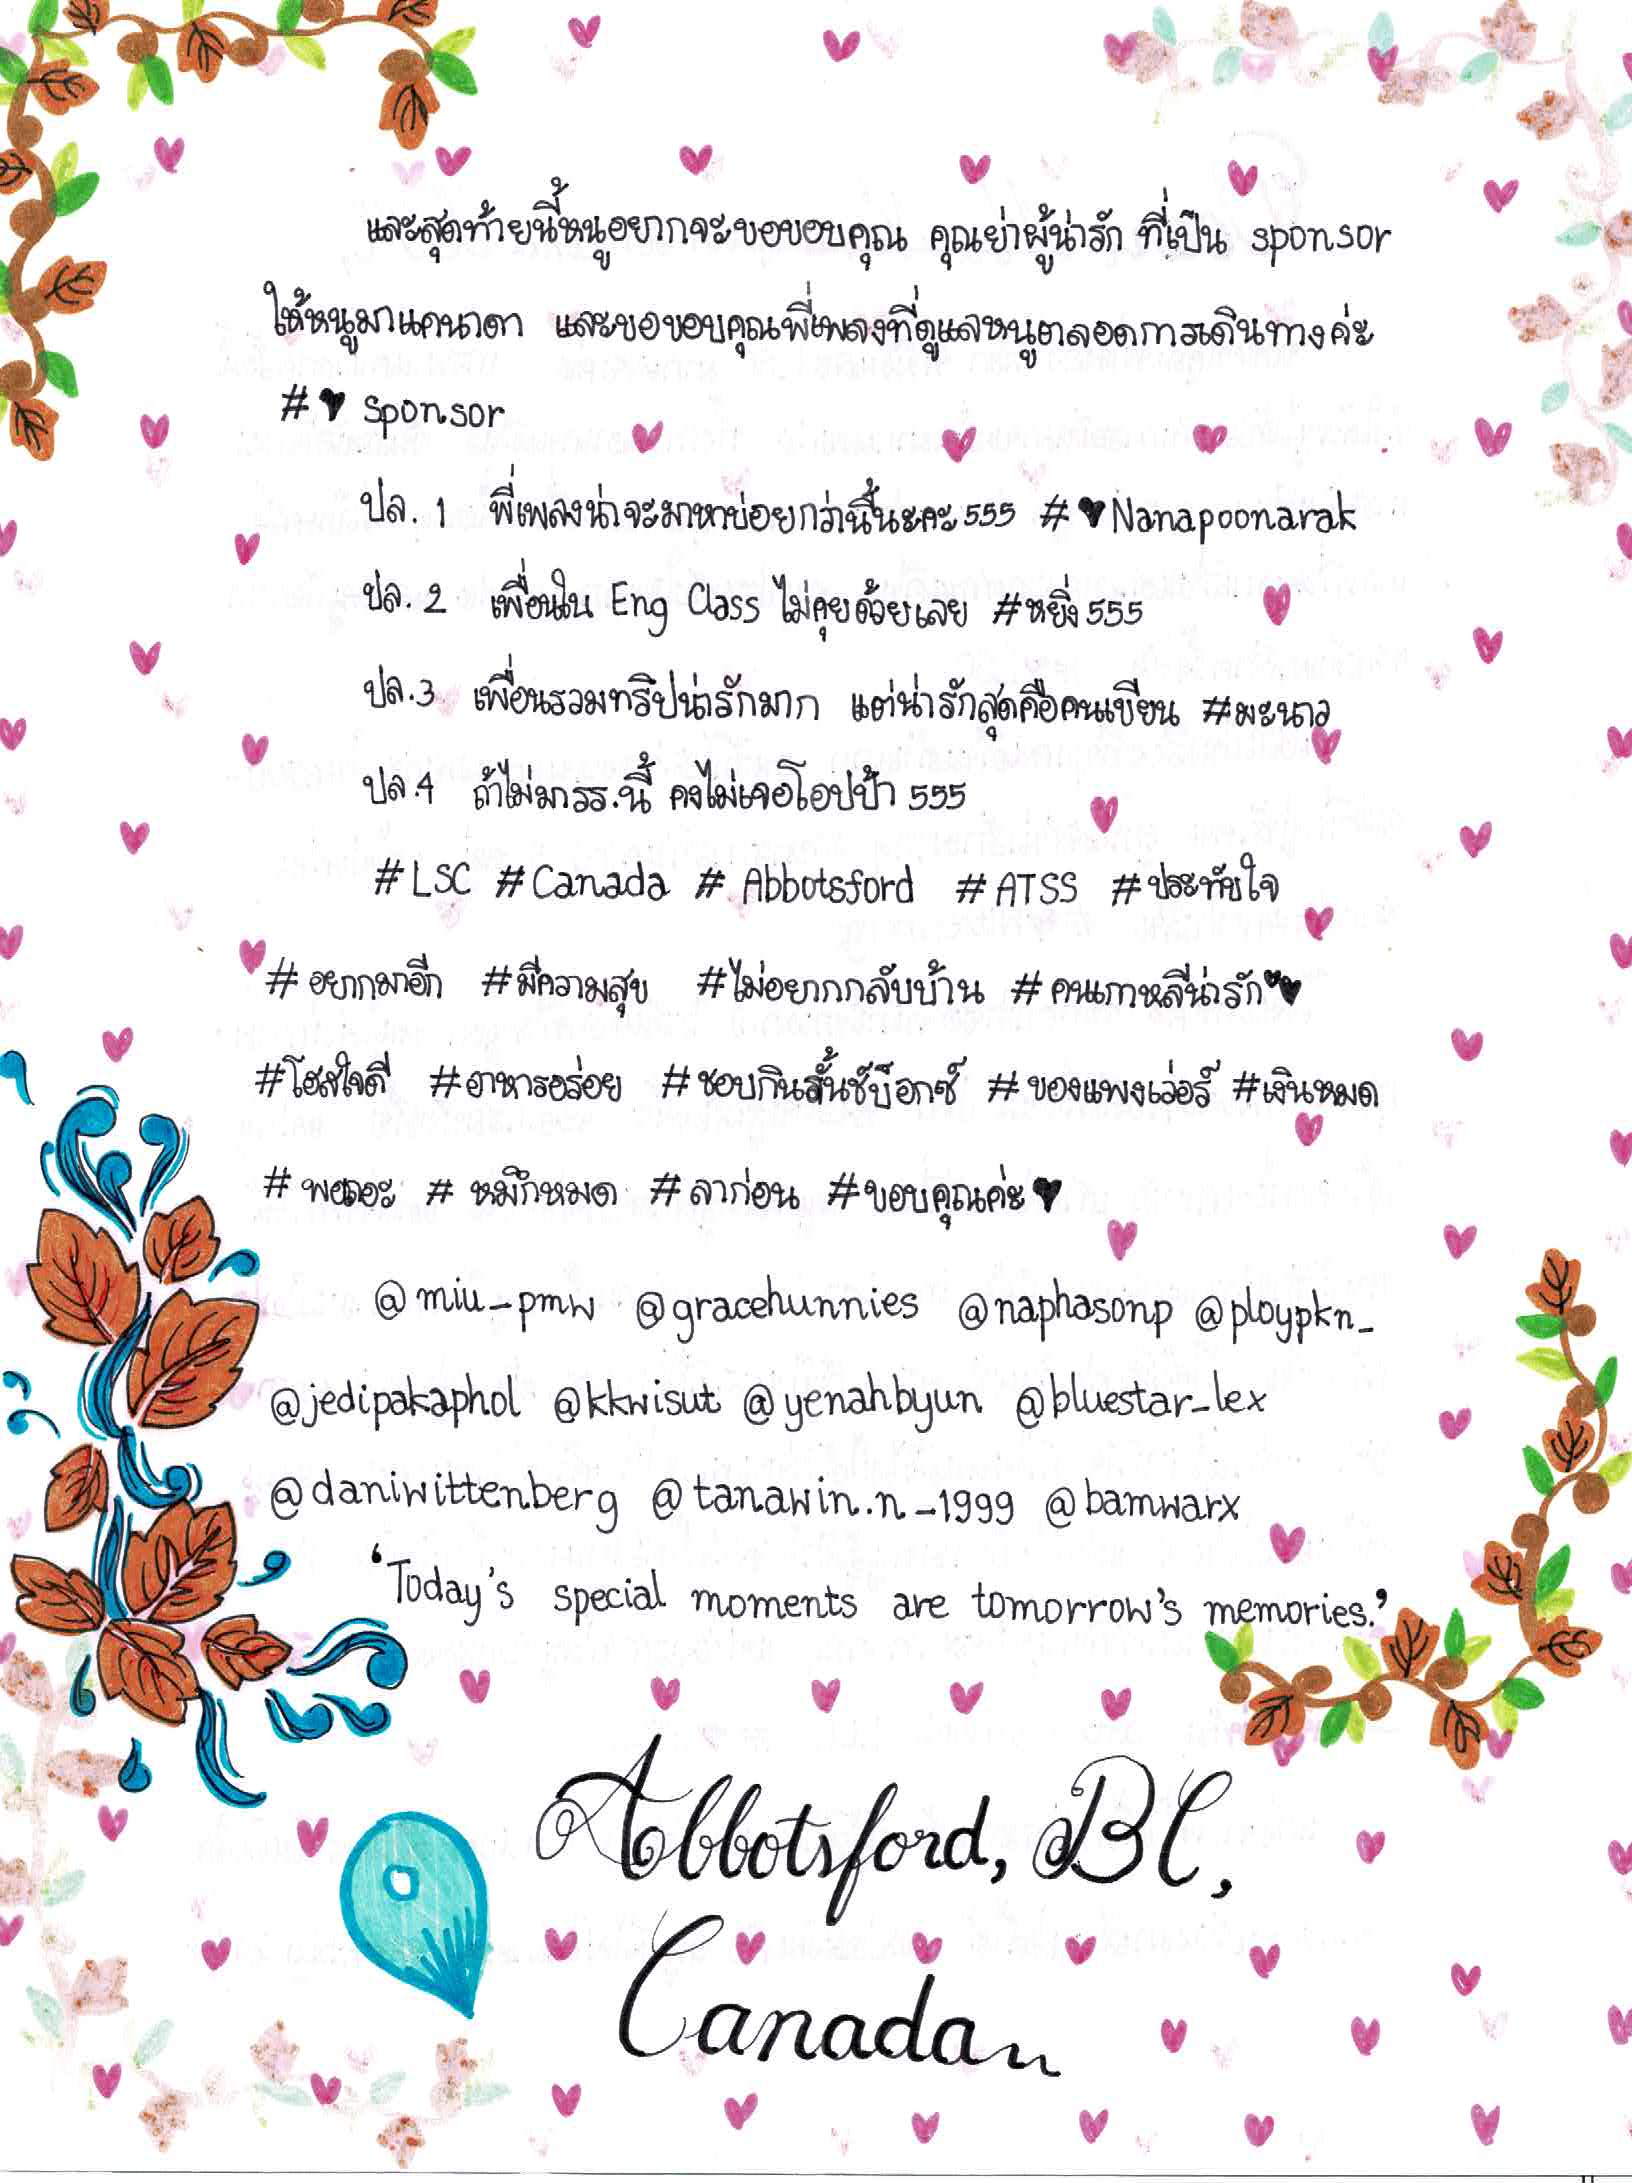 และสุดท้ายนี้หนูอยากจะขอขอบคุณ คุณย่าผู้น่ารัก ที่เป็น sponsor
ให้หนูมาแคนาดา และขอขอบคุณพี่เพลงที่ดูแลหนูตลอดการเดินทางค่ะ
#♥ sponsor
ปล.1 พี่เพลงน่าจะมาหาบ่อยกว่านี้นะคะ555 #♥Nanapoonarak
ปล.2 เพื่อนใน Eng Class ไม่คุยด้วยเลย #หยิ่ง555
ปล.3 เพื่อนรวมทริปน่ารักมาก แต่น่ารักสุดคือคนเขียน #มะนาว
ปล.4 ถ้าไม่มารร.นี้ คงไม่เจอโอปป้า 555
#LSC #Canada #Abbotsford #ATSS #ประทับใจ
#อยากมาอีก #มีความสุข #ไม่อยากกลับบ้าน #คนเกาหลีน่ารัก♥♥
#โฮสใจดี #อาหารอร่อย #ชอบกินลั้นช์บ็อกซ์ #ของแพงเว่อร์ #เงินหมด
#พอเถอะ #หมึกหมด #ลาก่อน #ขอบคุณค่ะ♥
@miu_pmw @gracehunnies @naphasonp @ploypkn_
@jedipakaphol @kkwisut @yenahbyun @bluestar_lex
@daniwittenberg @tanawin.n_1999 @bamwarx
‘Today's special moments are tomorrow's memories.’
Abbotsford, BC,
Canada